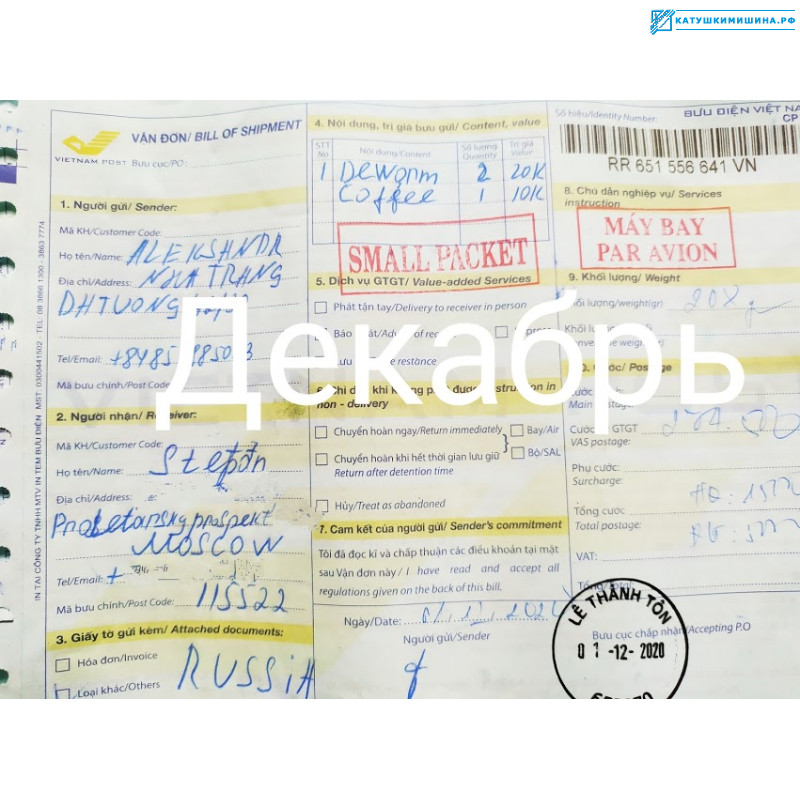 КАТУШКИМИШИНА.РФ
VIETNAM POST
VẬN ĐƠN/ BILL OF SHIPMENT
Bưu cục/PO:
1. Người gửi/ Sender:
Mã KH/Customer Code:
Họ tên/Name: ALEKSANDR
Địa chỉ/Address: NHA TRANG
Tel/Email:
Mã bưu chính/Post Code:
2. Người nhận/ Receiver:
Mã KH/Customer Code:
Họ tên/Name: Stepan
Địa chỉ/Address:
prospekt
MOSCOW
Tel/Email: +
Mã bưu chính/Post Code: 115522
3. Giấy tờ gửi kèm/ Attached documents:
Hóa đơn/Invoice
Loại khác/Others
RUSSIA
4. Nội dung, trị giá bưu gửi/ Content, value
STT No
Nội dung/Content
Số lượng Quantity
Trị giá Value
1 Deworm 2 20K
Coffee 1 10K
SMALL PACKET
5. Dịch vụ GTGT/ Value-added Services
Phát tận tay/Delivery to receiver in person
Báo phát/Advice of receipt
restance
non - delivery
Chuyển hoàn ngay/Return immediately
Chuyển hoàn khi hết thời gian lưu giữ
Return after detention time
Bay/Air
Bộ/SAL
Hủy/Treat as abandoned
7. Cam kết của người gửi/ Sender's commitment
Tôi đã đọc kĩ và chấp thuận các điều khoản tại mặt
sau Vận đơn này / I have read and accept all
regulations given on the back of this bill.
Ngày/Date:
Người gửi/Sender
Số hiệu/Identity Number:
BƯU ĐIỆN VIỆT NA
CP
RR 651 556 641 VN
8. Chỉ dẫn nghiệp vụ/ Services
instruction
MÁY BAY
PAR AVION
9. Khối lượng/ Weight
Khối lượng/weight(gr)
Postage
Main postage:
Cước GTGT
VAS postage:
Phụ cước:
Surcharge:
Tổng cước
Total postage:
VAT:
Bưu cục chấp nhận/Accepting P.O
LÊ THÁNH TÔN
01-12-2020
Декабрь